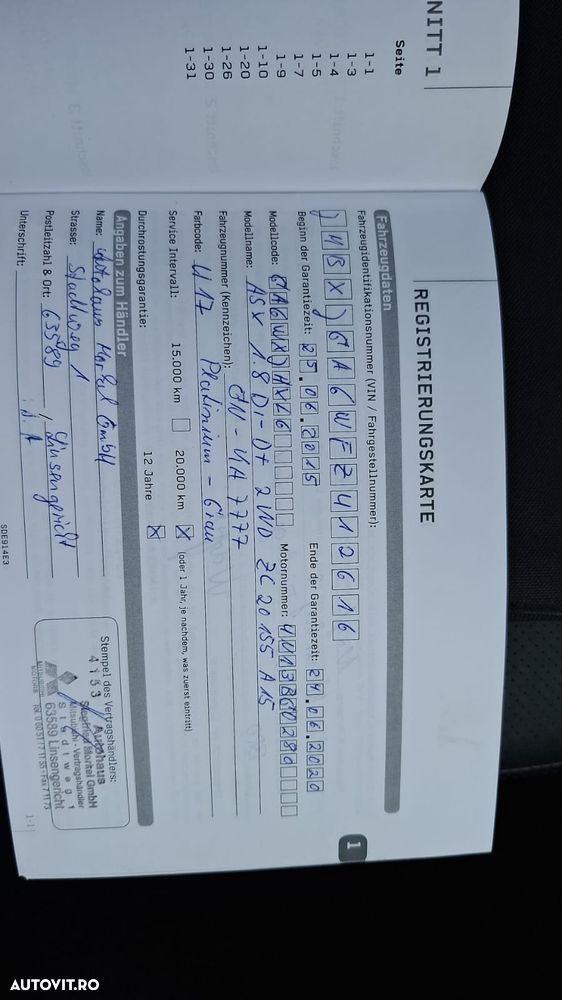 NITT 1
Seite
1-1
1-3
1-4
1-5
1-7
1-9
1-10
1-20
1-26
1-30
1-31
REGISTRIERUNGSKARTE
1
Fahrzeugdaten
Fahrzeugidentifikationsnummer (VIN / Fahrgestellnummer):
JMBXJGA6WFZ412616
Beginn der Garantiezeit: 25.06.2015 Ende der Garantiezeit: 24.06.2020
Modellcode: GA6WXJHXL6 Motornummer:
Modellname: ASX 1.8 DI-D+ 2WD ZC20155 A15
Fahrzeugnummer (Kennzeichen): GN-MA 7777
Farbcode: U17 Platinium-Grau
Service Intervall: 15.000 km 20.000 km X (oder 1 Jahr, je nachdem, was zuerst eintritt)
Durchrostungsgarantie: 12 Jahre X
Angaben zum Händler
Name: Autohaus Morkel GmbH
Strasse: Stadtweg 1
Postleitzahl & Ort: 63589 / Linsengericht
Unterschrift: i.A
Stempel des Vertragshändlers:
Autohaus
Siegfried Morkel GmbH
Mitsubishi - Vertragshändler
Stadtweg 1
63589 Linsengericht
MITSUBISHI MOTORS
SDE914E3
1-1
AUTOVIT.RO